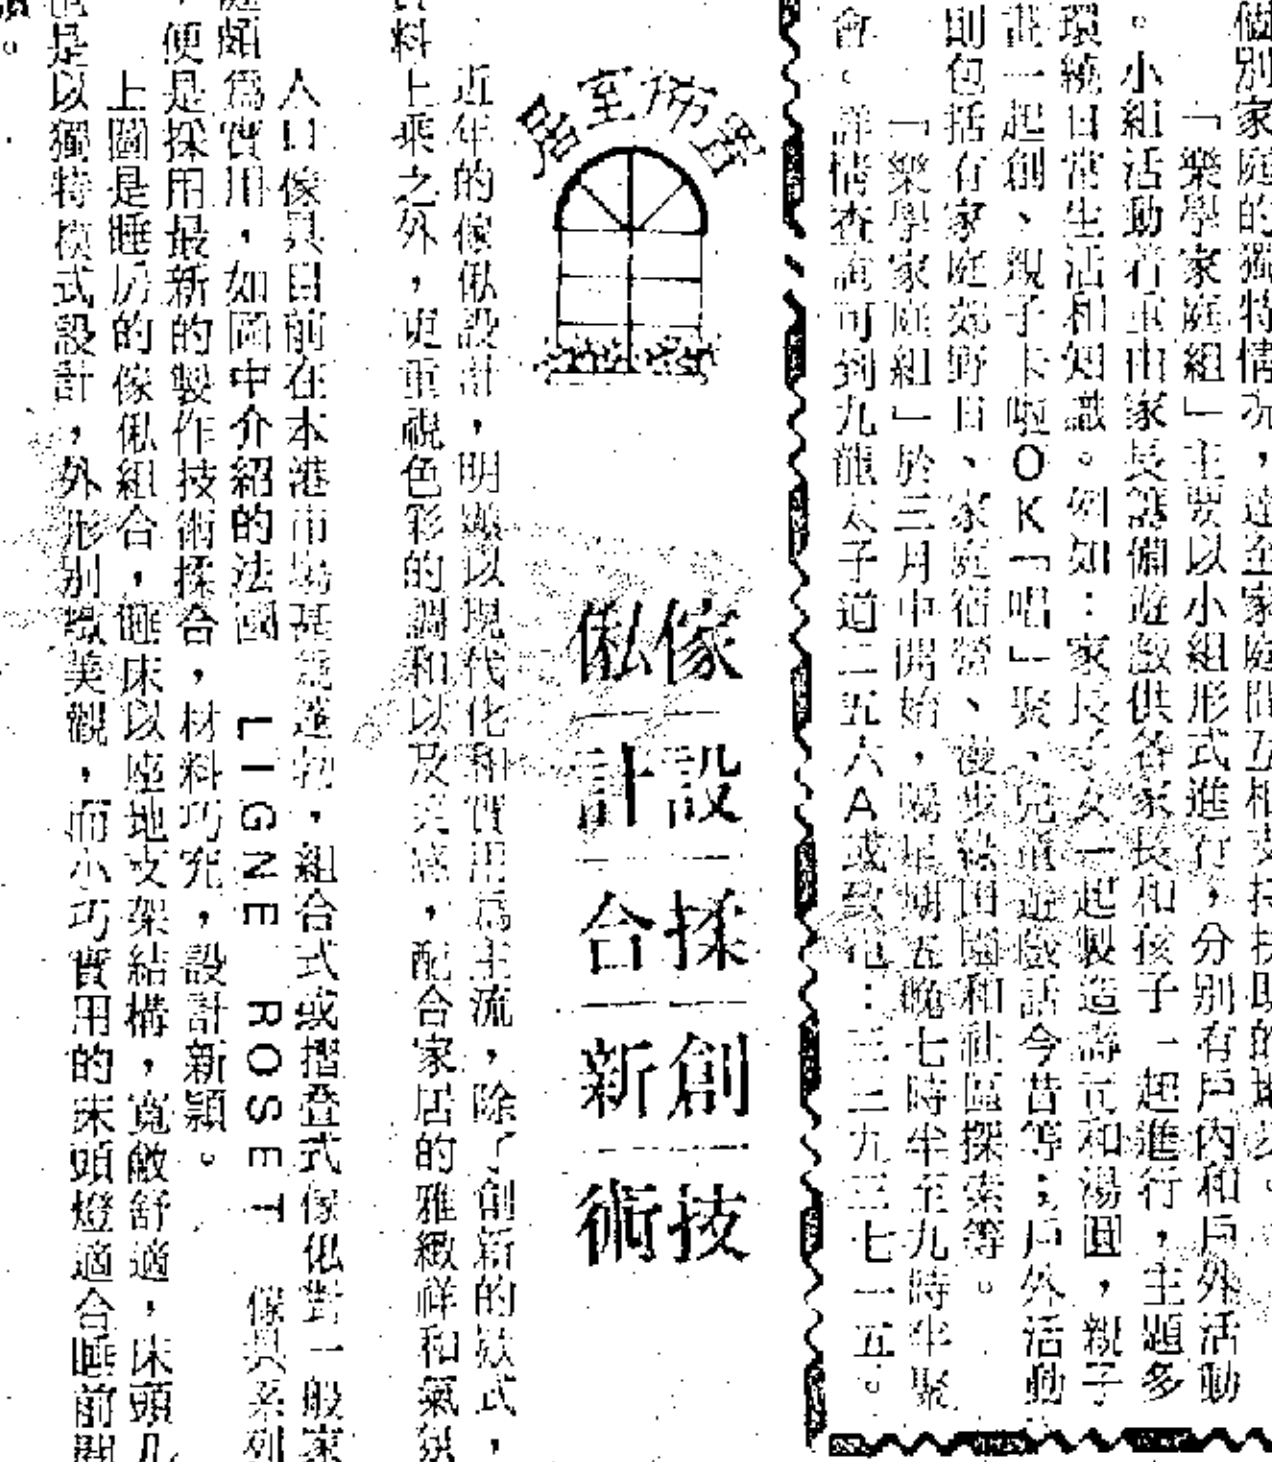 個別家庭的獨特情況，達至家庭間互相支持扶助的地步。
「樂學家庭組」主要以小組形式進行，分別有戶內和戶外活動
。小組活動着重由家長籌備遊戲供各家長和孩子一起進行，主題多
環繞日常生活和知識。例如：家長子女一起製造壽司和湯圓，親子
一起創、親子卡啦OK「唱」聚、兒童遊戲話今昔等；戶外活動
則包括有家庭郊野日、家庭宿營、漫步絲田園和社區探索等。
「樂學家庭組」於三月中開始，逢星期五晚七時半至九時半聚
會。詳情查詢可到九龍太子道二五六A或致電：三三九三七一五。
居室佈置
傢俬設計揉合創新技術
近年的傢俬設計，明顯以現代化和實用為主流，除了創新的款式，
料上乘之外，更重視色彩的調和以及美感，配合家居的雅緻祥和氣氛
人口傢具目前在本港市場甚為蓬勃，組合式或摺叠式傢俬對一般家
庭頗為實用，如圖中介紹的法國 LIGNE ROSET 傢具系列
，便是採用最新的製作技術揉合，材料巧究，設計新穎。
上圖是睡房的傢俬組合，睡床以座地支架結構，寬敞舒適，床頭几
也是以獨特模式設計，外形別緻美觀，而小巧實用的床頭燈適合睡前閱
。